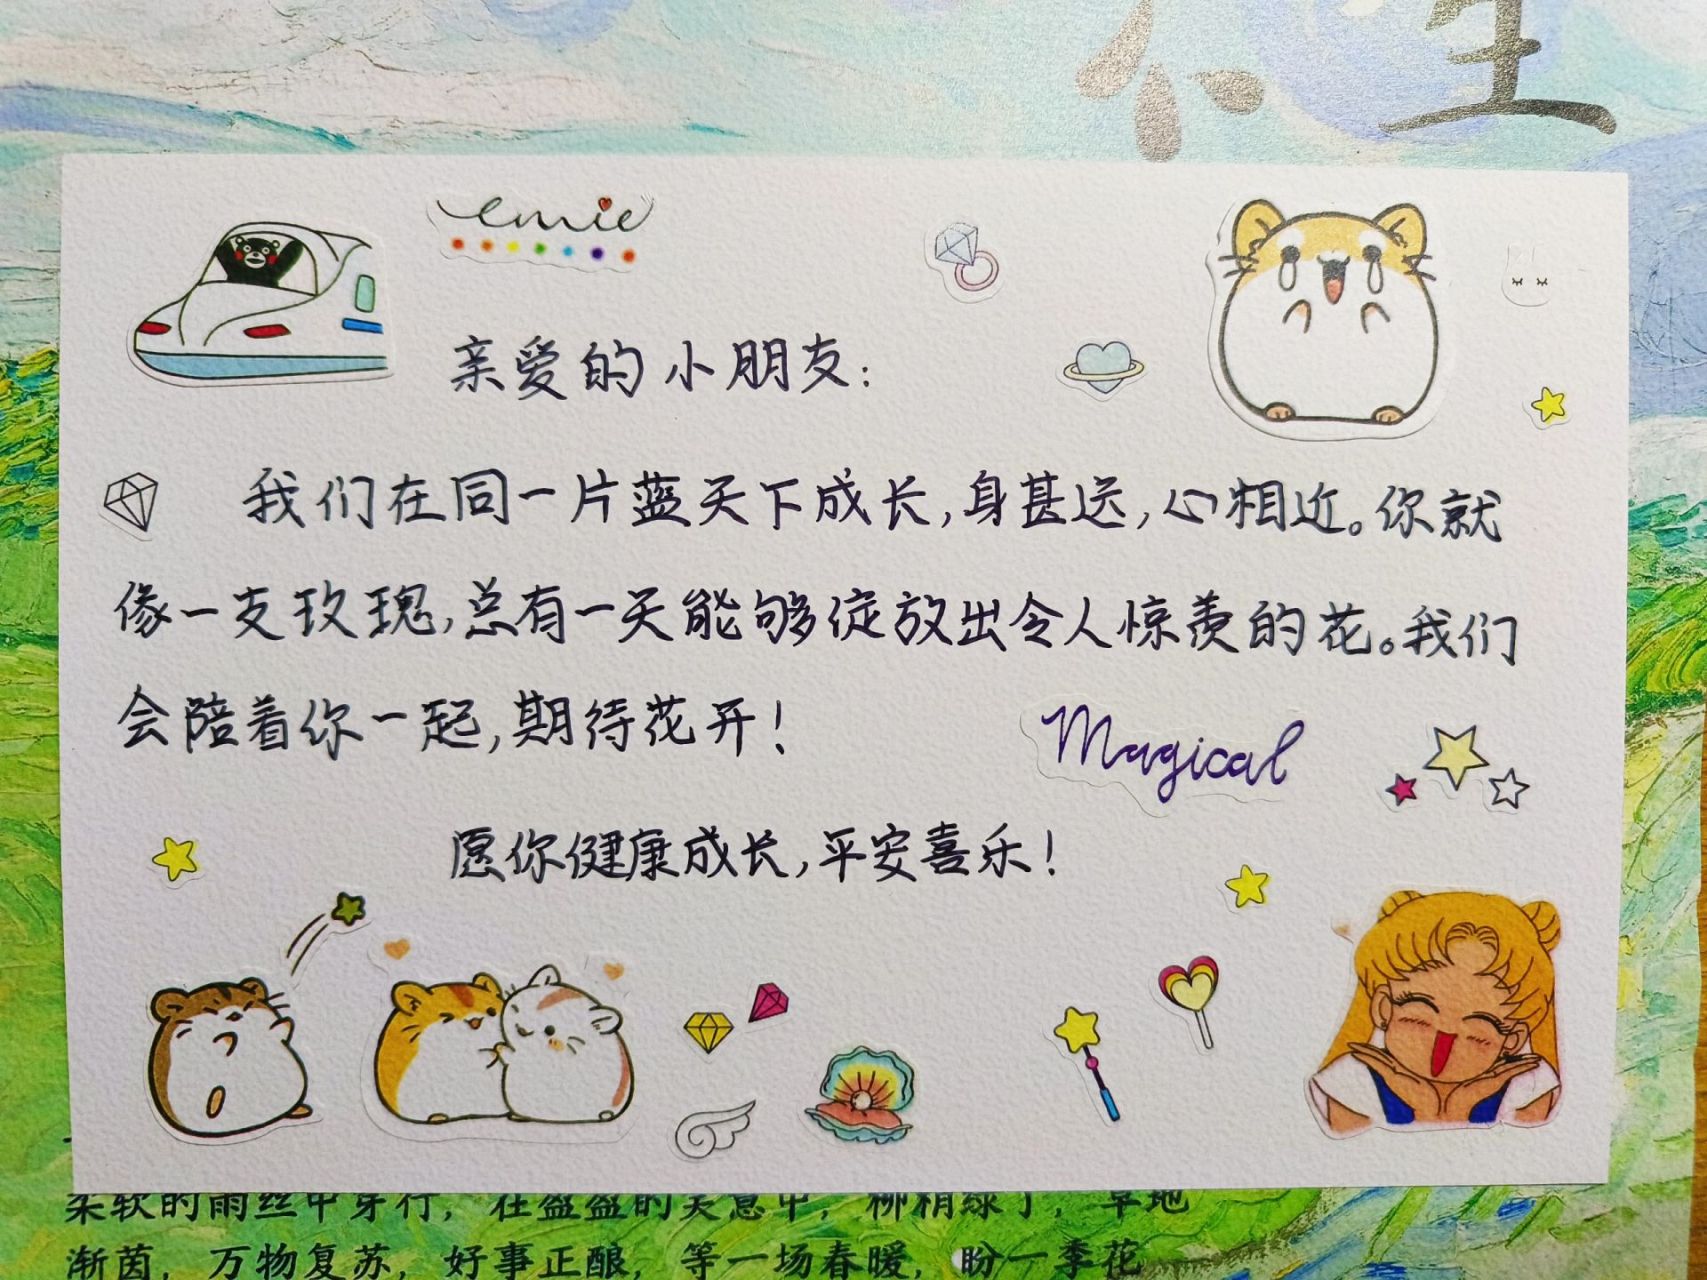 emie
亲爱的小朋友:
我们在同一片蓝天下成长,身甚远,心相近。你就
像一支玫瑰,总有一天能够绽放出令人惊羡的花。我们
会陪着你一起,期待花开!
Magical
愿你健康成长,平安喜乐!
柔软的雨丝中穿行，在盈盈的笑意中，柳梢绿了，草地
渐茵，万物复苏，好事正酿，等一场春暖，盼一季花